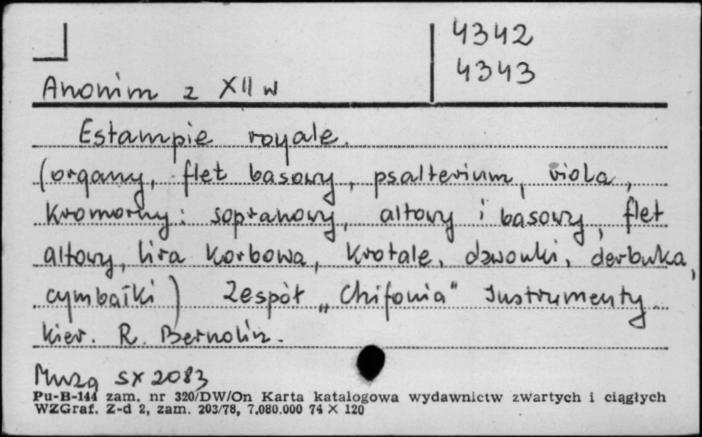 4342
4343
Anonim z XII w
Estampie royale.
(organy, flet basowy, psalterium, viola,
Kromorny: sopranowy, altowy i basowy, flet
altowy, lira Korbowa, Krotale, dzwonki, derbuka,
cymbałki) Zespół „Chifonia" Instrumenty
kier. R. Bernolin.
Muza SX 2083
Pu-B-144 zam. nr 320/DW/On Karta katalogowa wydawnictw zwartych i ciągłych
WZGraf. Z-d 2, zam. 203/78, 7.080.000 74 × 120